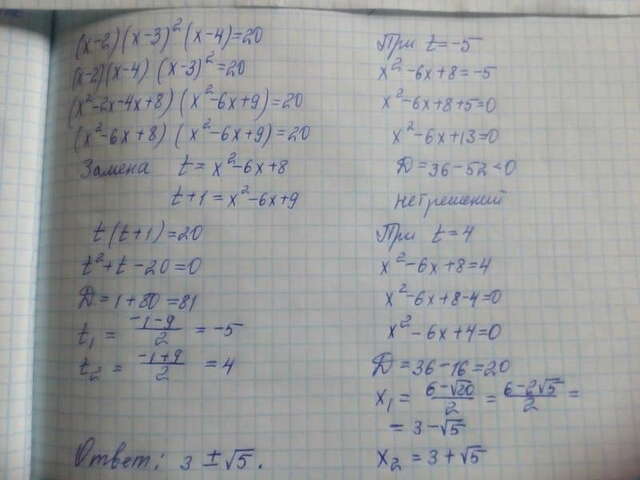 (x-2)(x-3)²(x-4)=20
(x-2)(x-4)(x-3)²=20
(x²-2x-4x+8)(x²-6x+9)=20
(x²-6x+8)(x²-6x+9)=20
Замена t=x²-6x+8
t+1=x²-6x+9
t(t+1)=20
t²+t-20=0
D=1+80=81
t₁ = (-1-9)/2 = -5
t₂ = (-1+9)/2 = 4
Ответ: 3 ±√5.
При t=-5
x²-6x+8=-5
x²-6x+8+5=0
x²-6x+13=0
D=36-52<0
нет решений
При t=4
x²-6x+8=4
x²-6x+8-4=0
x²-6x+4=0
D=36-16=20
x₁ = (6-√20)/2 = (6-2√5)/2 =
= 3-√5
x₂ = 3+√5